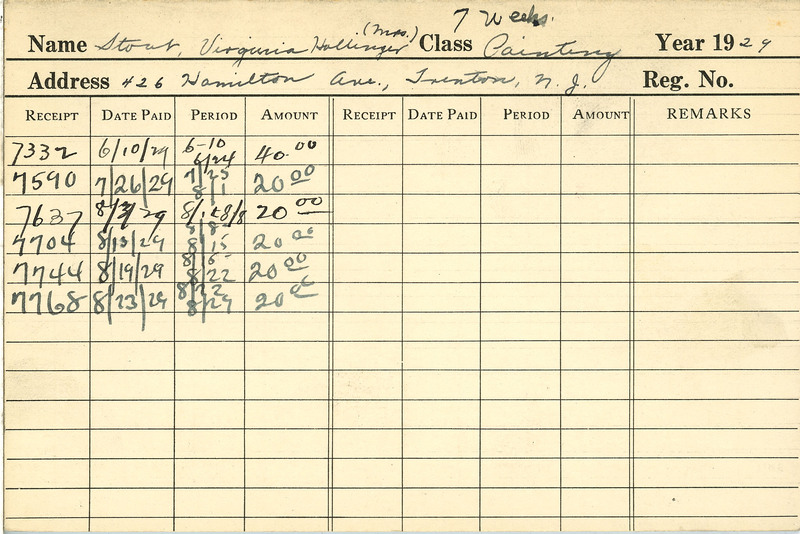 7 Weeks.
Name Stout, Virginia Hollinger (Mrs.) Class Painting Year 1929
Address 426 Hamilton Ave., Trenton, N. J. Reg. No.
RECEIPT DATE PAID PERIOD AMOUNT RECEIPT DATE PAID PERIOD AMOUNT REMARKS
7332 6/10/29 6-10 6/24 40.00
7590 7/26/29 7/25 8/1 20 00
7637 8/2/29 8/1 & 8/8 20 00
7704 8/13/29 8/8 8/15 20 00
7744 8/19/29 8/15 8/22 20 00
7768 8/23/29 8/22 8/29 20 00